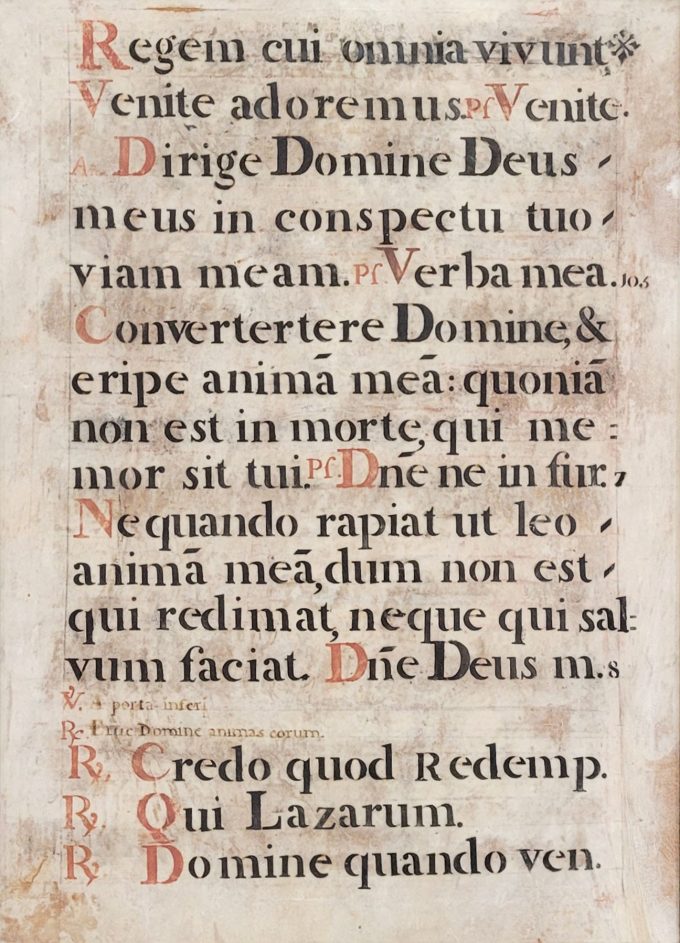 Regem cui omnia vivunt
Venite adoremus. Ps Venite.
A Dirige Domine Deus
meus in conspectu tuo
viam meam. Ps Verba mea.
Convertertere Domine, &
eripe animā meā: quoniā
non est in morte, qui me:
mor sit tui. Ps Dn̄e ne in fur.
Nequando rapiat ut leo
animā meā, dum non est
qui redimat, neque qui sal:
vum faciat. Dn̄e Deus m. 8
℣. A porta inferi
℟. Erue Domine animas eorum.
℟. Credo quod Redemp.
℟. Qui Lazarum.
℟. Domine quando ven.